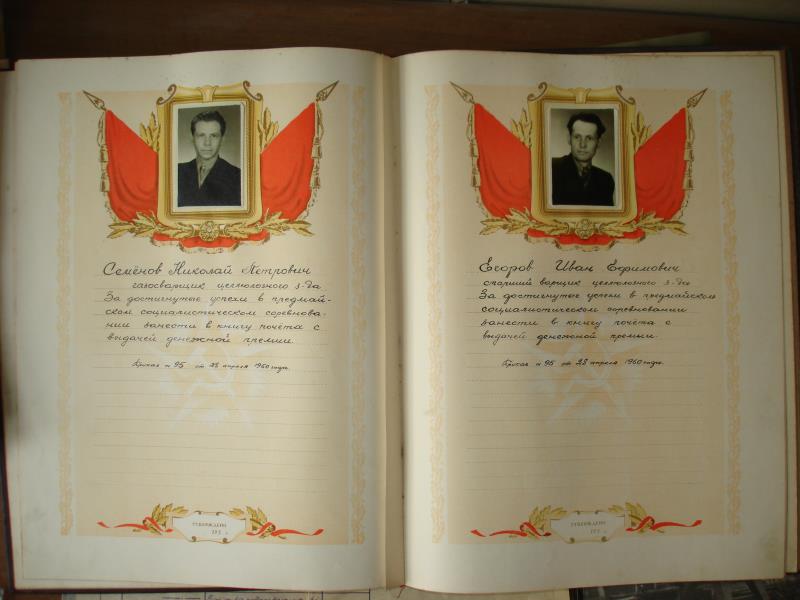 Семёнов Николай Петрович
газосварщик целлюлозного з-да
За достигнутые успехи в предмай-
ском социалистическом соревнова-
нии занести в книгу почёта с
выдачей денежной премии.
Приказ н 95 от 28 апреля 1960 годы.
УТВЕРЖДЕНО
195 г.
Егоров Иван Ефимович
старший варщик целлюлозного з-да
За достигнутые успехи в предмайском
социалистическом соревновании
занести в книгу почёта с
выдачей денежной премии.
Приказ н 95 от 28 апреля 1960 годы.
УТВЕРЖДЕНО
195 г.